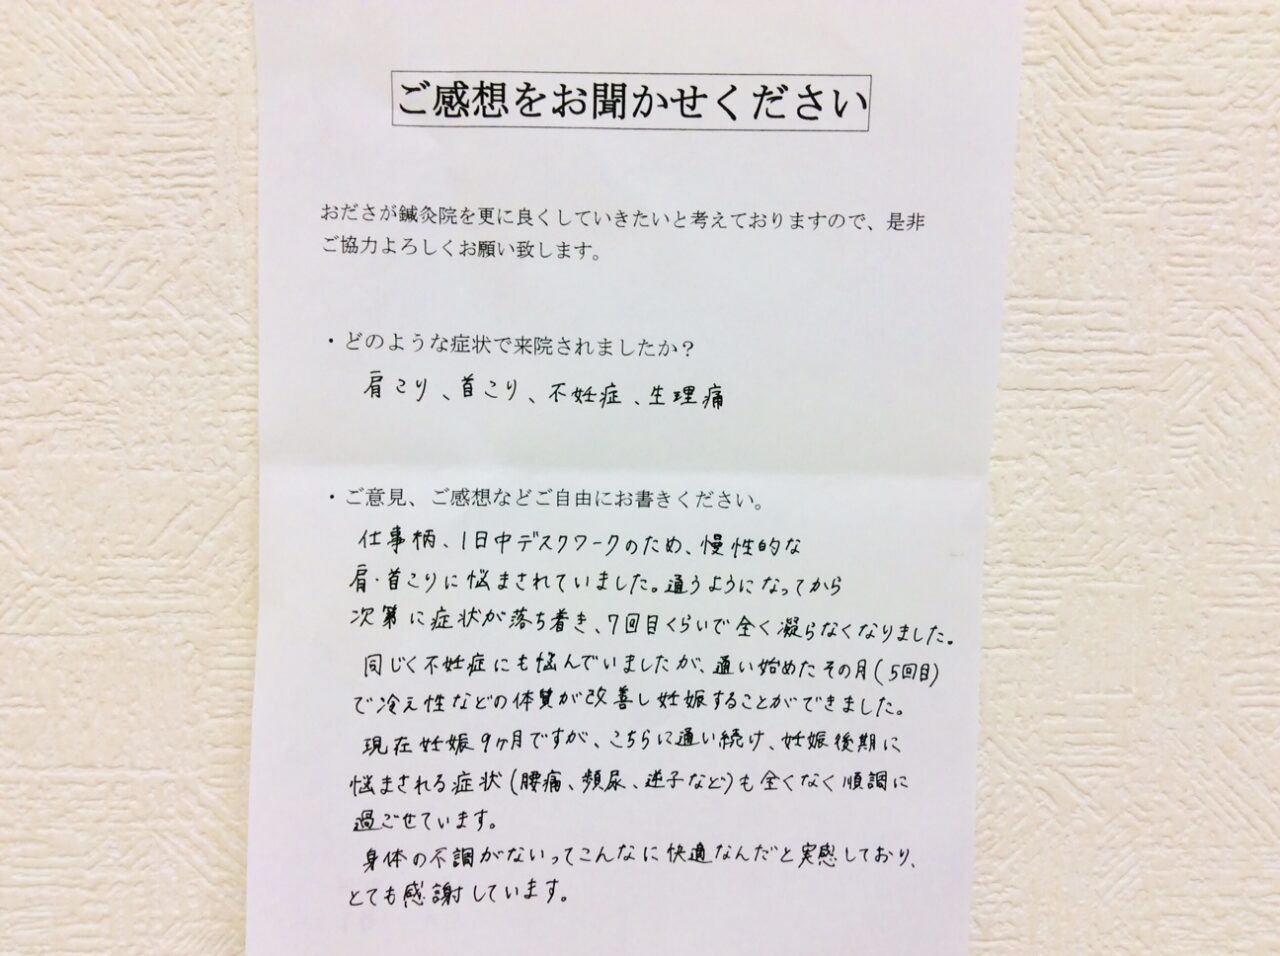 ご感想をお聞かせください
おださが鍼灸院を更に良くしていきたいと考えておりますので、是非
ご協力よろしくお願い致します。
・どのような症状で来院されましたか？
肩こり、首こり、不妊症、生理痛
・ご意見、ご感想などご自由にお書きください。
仕事柄、1日中デスクワークのため、慢性的な
肩・首こりに悩まされていました。通うようになってから
次第に症状が落ち着き、7回目くらいで全く凝らなくなりました。
同じく不妊症にも悩んでいましたが、通い始めたその月(5回目)
で冷え性などの体質が改善し妊娠することができました。
現在妊娠9ヶ月ですが、こちらに通い続け、妊娠後期に
悩まされる症状(腰痛、頻尿、逆子など)も全くなく順調に
過ごせています。
身体の不調がないってこんなに快適なんだと実感しており、
とても感謝しています。